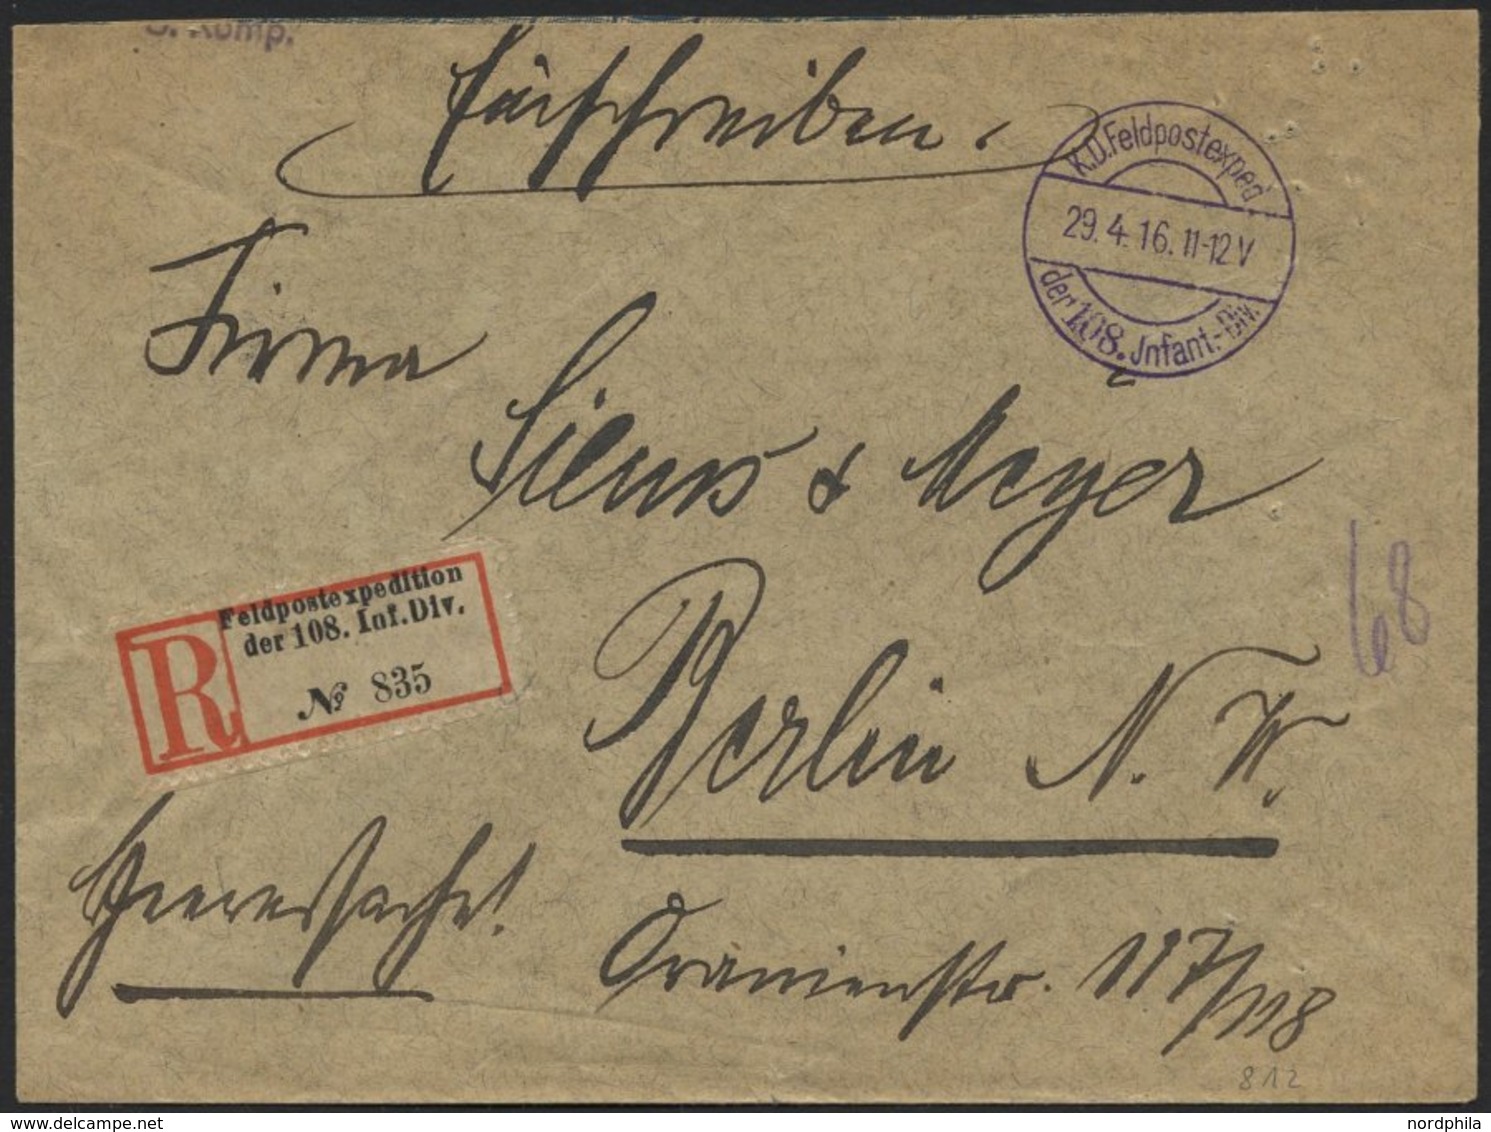 Komp.
Einschreiben.
K.D.Feldpostexped.
29. 4. 16. 11-12 V
der 108. Jnfant.-Div.
Firma
& Meyer
Feldpostexpedition
der 108. Inf.Div.
R
№ 835
68
Berlin N. W.
Heeressache!
Oranienstr. 117/118
812
www.delcampe.net
nordphila